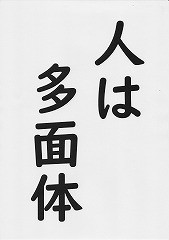 人は
多面体